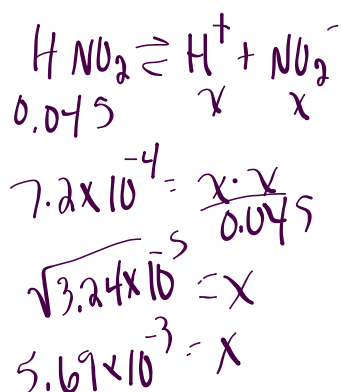 HNO₂ ⇌ H⁺ + NO₂⁻
0.045 x x
7.2x10⁻⁴ = x·x/0.045
√3.24x10⁻⁵ = x
5.69x10⁻³ = x